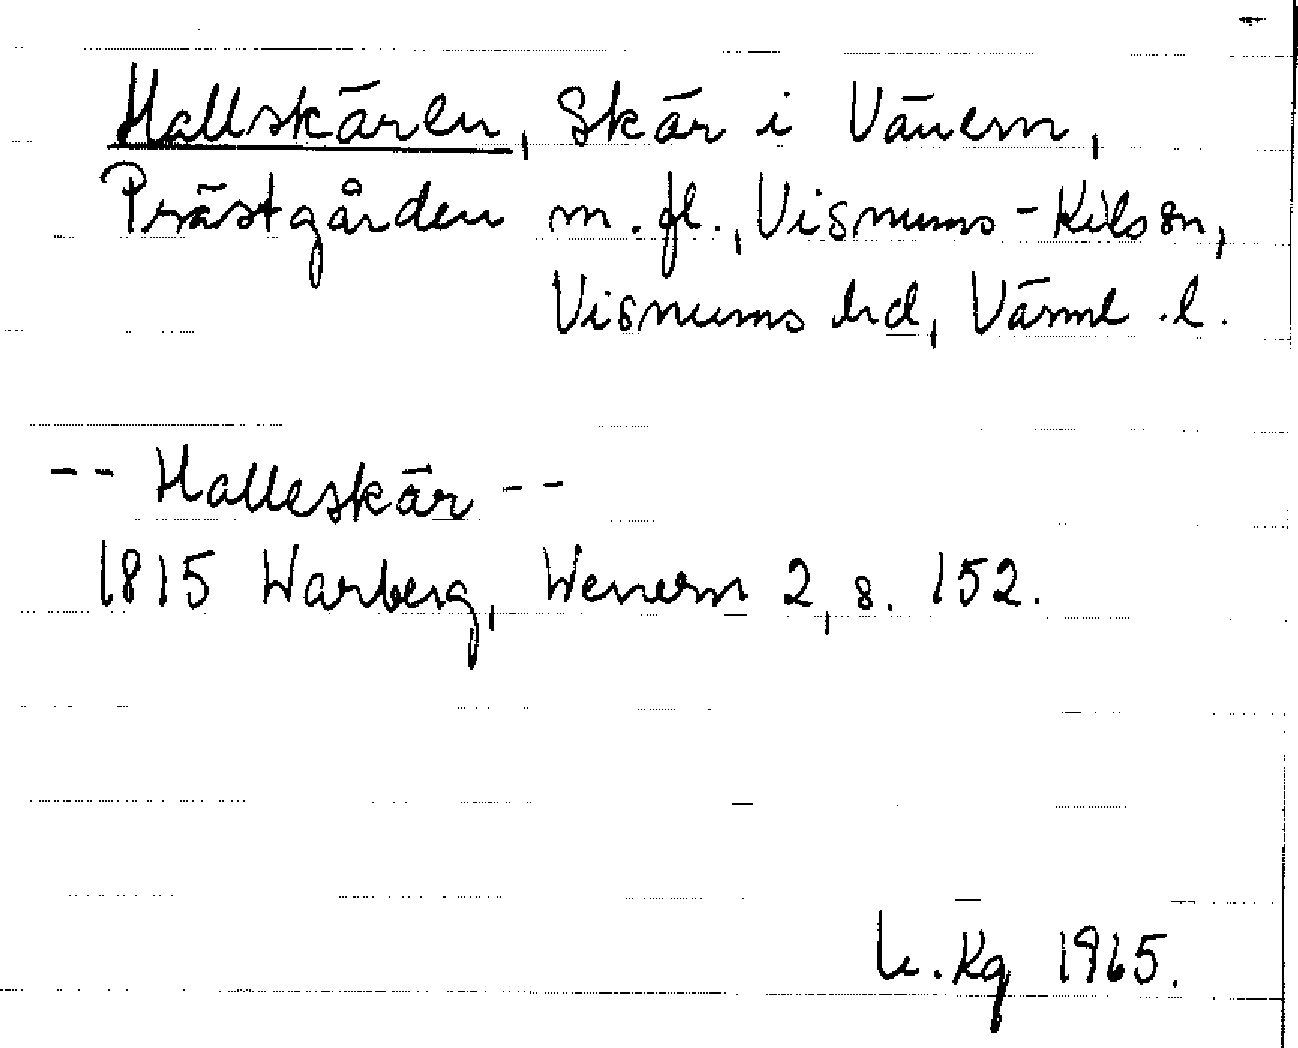 Hallskären, Skär i Vänern,
Prästgården m. fl., Visnums-Kils sn,
Visnums hd, Värml. l.
-- Halleskär --
1815 Warberg, Wenern 2, s. 152.
Kg 1965.